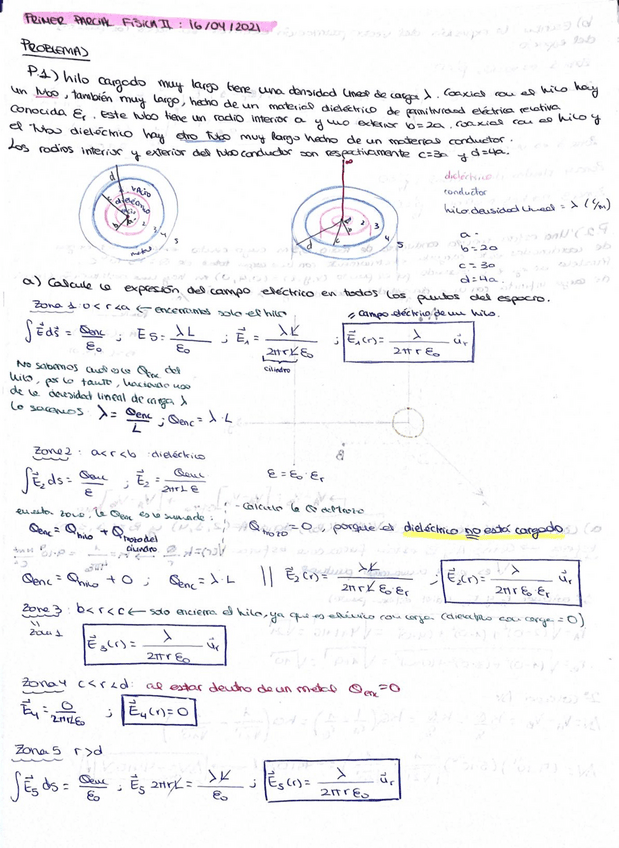 PRIMER PARCIAL FISICA II : 16/04/2021
PROBLEMAS
P.1) hilo cargado muy largo tiene una densidad lineal de carga λ. Coaxial con el hilo hay
un tubo, también muy largo, hecho de un material dieléctrico de permitividad eléctrica relativa
conocida εr. Este tubo tiene un radio interior a y uno exterior b=2a. Coaxial con el hilo y
el tubo dieléctrico hay otro tubo muy largo hecho de un material conductor.
Los radios interior y exterior del tubo conductor son respectivamente c=3a y d=4a.
dieléctrico
conductor
hilo densidad lineal = λ (C/m)
a.
b=2a
c=3a
d=4a.
a) Calcule la expresión del campo eléctrico en todos los puntos del espacio.
Zona 1: 0<r<a ← encerramos solo el hilo
= campo eléctrico de un hilo.
∫E⃗ds⃗ = Qenc/ε0 ; ES = λL/ε0 ; E⃗1 = λL/2πrLε0 ; E⃗1(r) = λ/2πrε0 u⃗r
cilindro
No sabemos cual es la Qenc del
hilo, por lo tanto, haciendo uso
de la densidad lineal de carga λ
la sacamos λ = Qenc/L ; Qenc = λ·L
Zona 2: a<r<b dieléctrico
∫E⃗2 ds = Qenc/ε ; E⃗2 = Qenc/2πrLε ε = ε0·εr
en esta zona, la Qenc es la suma de:
- Calculo la Q del trozo
Qenc = Qhilo + Qtrozo del cilindro
Qtrozo = 0, porque el dieléctrico no está cargado
Qenc = Qhilo + 0 ; Qenc = λ·L || E⃗2(r) = λL/2πrLε0·εr ; E⃗2(r) = λ/2πrε0·εr u⃗r
Zona 3: b<r<c ← solo encierra el hilo, ya que es el único con carga (dieléctrico con carga = 0)
"
Zona 1
E⃗3(r) = λ/2πrε0 u⃗r
Zona 4 c<r<d: al estar dentro de un metal Qenc=0
E⃗4 = 0/2πrLε0 ; E⃗4(r)=0
Zona 5 r>d
∫E⃗5 ds = Qenc/ε0 ; E⃗5 2πrL = λL/ε0 ; E⃗5(r) = λ/2πrε0 u⃗r